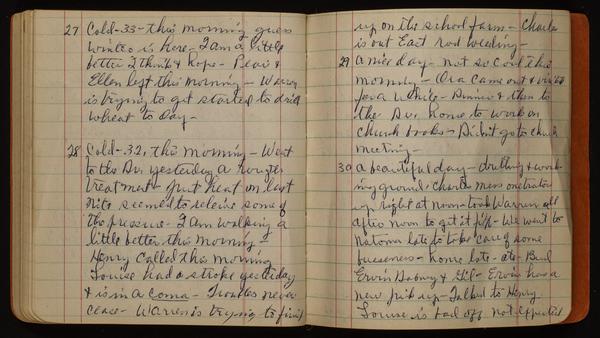 27 Cold - 33 - this morning guess
winter is here - I am a little
better I think & hope - Pear &
Ellen left this morning - Warren
is trying to get started to drill
wheat to day -
28 Cold - 32, this morning - Went
to the Dr. yesterday a
treatment - Put heat on last
nite seemed to releive some of
the pressure - I am walking a
little better this morning -
Henry Called this morning
Louise had a stroke yesterday
& is in a coma - Troubles never
cease - Warren is trying to finish
up on the school farm - Charles
is out East rod weeding -
29 A nice day - not so cool this
morning - Ora came out & visited
for a while - Dinner & then to
the Dr. home to work on
church books - Didn't go to church
meeting -
30 A beautiful day - drilling & work-
ing ground. Charles
up right at noon - took Warren all
after noon to get it fix - We went to
Natoma late to take care of some
buseness - home late - ate - Bud
Ervin & - Ervin has a
new pick up - Talked to Henry
Louise is bad off not expected